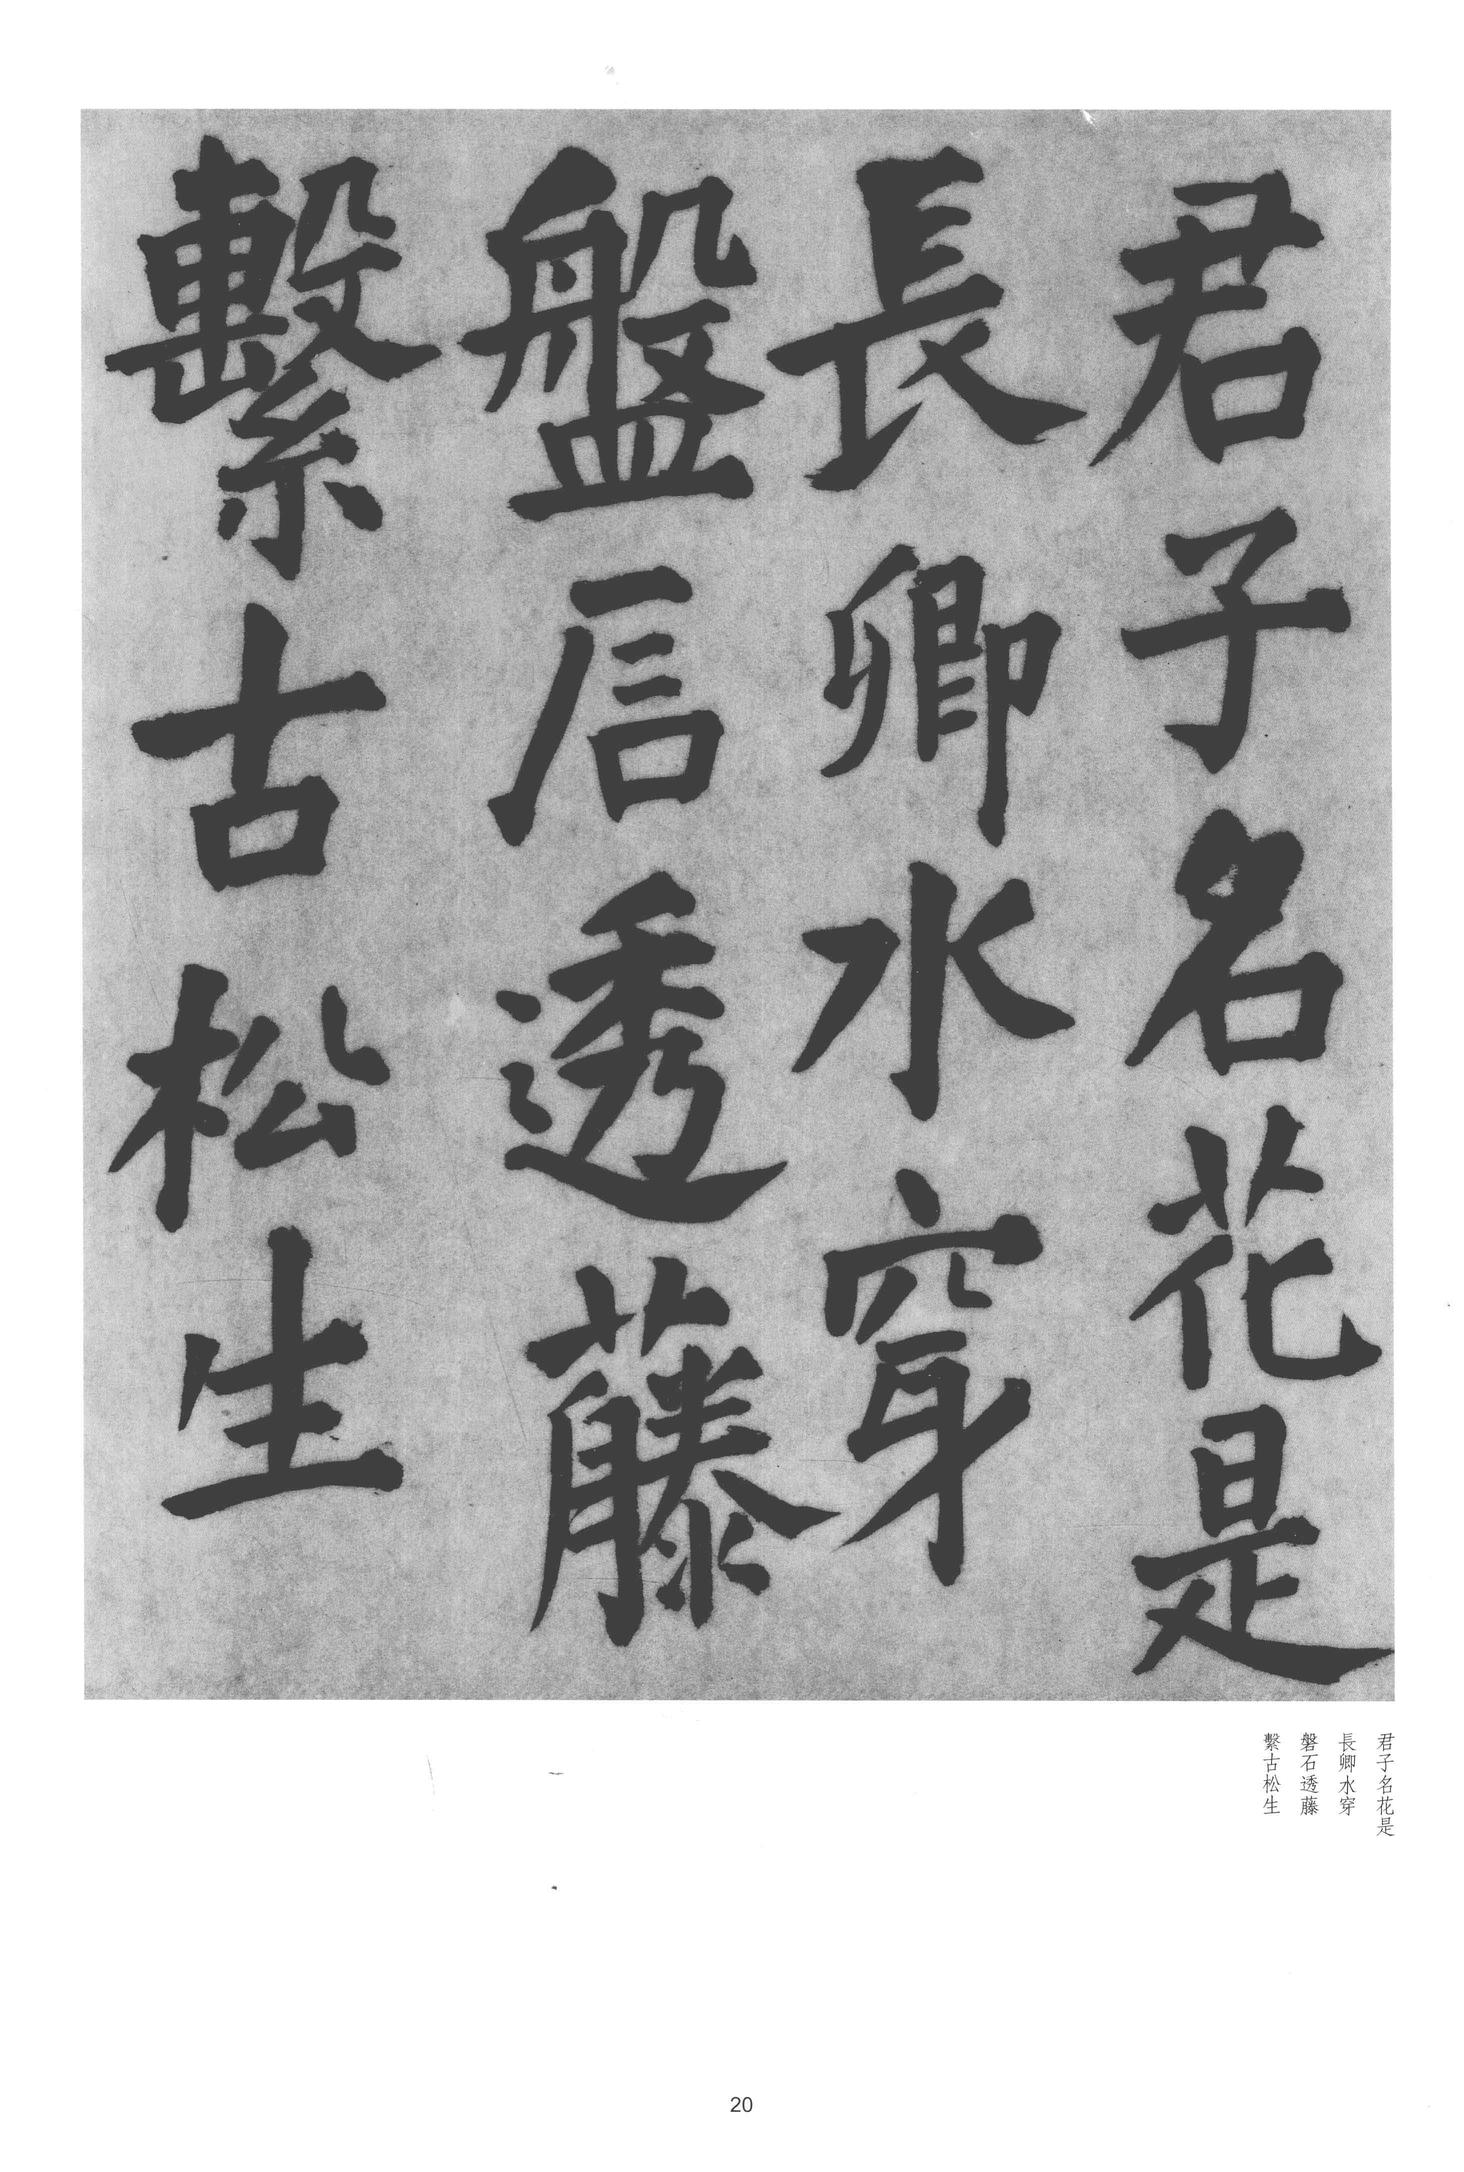 君子名花是
長卿水穿
盤石透藤
繫古松生
君子名花是
長卿水穿
磐石透藤
繫古松生
20